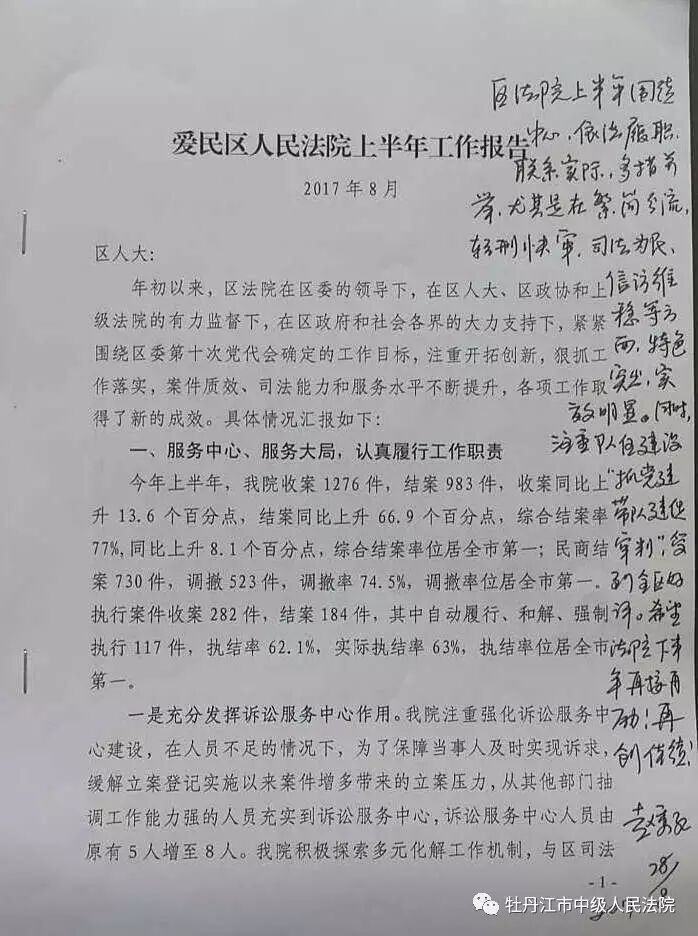 爱民区人民法院上半年工作报告
2017年8月
区人大:
年初以来，区法院在区委的领导下，在区人大、区政协和上
级法院的有力监督下，在区政府和社会各界的大力支持下，紧紧
围绕区委第十次党代会确定的工作目标，注重开拓创新，狠抓工
作落实，案件质效、司法能力和服务水平不断提升，各项工作取
得了新的成效。具体情况汇报如下:
一、服务中心、服务大局，认真履行工作职责
今年上半年，我院收案1276件，结案983件，收案同比上
升13.6个百分点，结案同比上升66.9个百分点，综合结案率
77%,同比上升8.1个百分点，综合结案率位居全市第一；民商结
案730件，调撤523件，调撤率74.5%，调撤率位居全市第一。
执行案件收案282件，结案184件，其中自动履行、和解、强制
执行117件，执结率62.1%，实际执结率63%，执结率位居全市
第一。
一是充分发挥诉讼服务中心作用。我院注重强化诉讼服务中
心建设，在人员不足的情况下，为了保障当事人及时实现诉求，
缓解立案登记实施以来案件增多带来的立案压力，从其他部门抽
调工作能力强的人员充实到诉讼服务中心，诉讼服务中心人员由
原有5人增至8人。我院积极探索多元化解工作机制，与区司法
-1-
区法院上半年围绕
中心、依法履职、
联系实际、多措并
举，尤其是在繁简分流，
轻刑快审，司法为民、
信访维
稳等方
面，特色
突出，实
效明显。同时，
注重队伍建设
“抓党建
带队建促
审判”，受
到全区好
评。希望
法院下半
年再接再
励！再
创佳绩!
28/8
牡丹江市中级人民法院